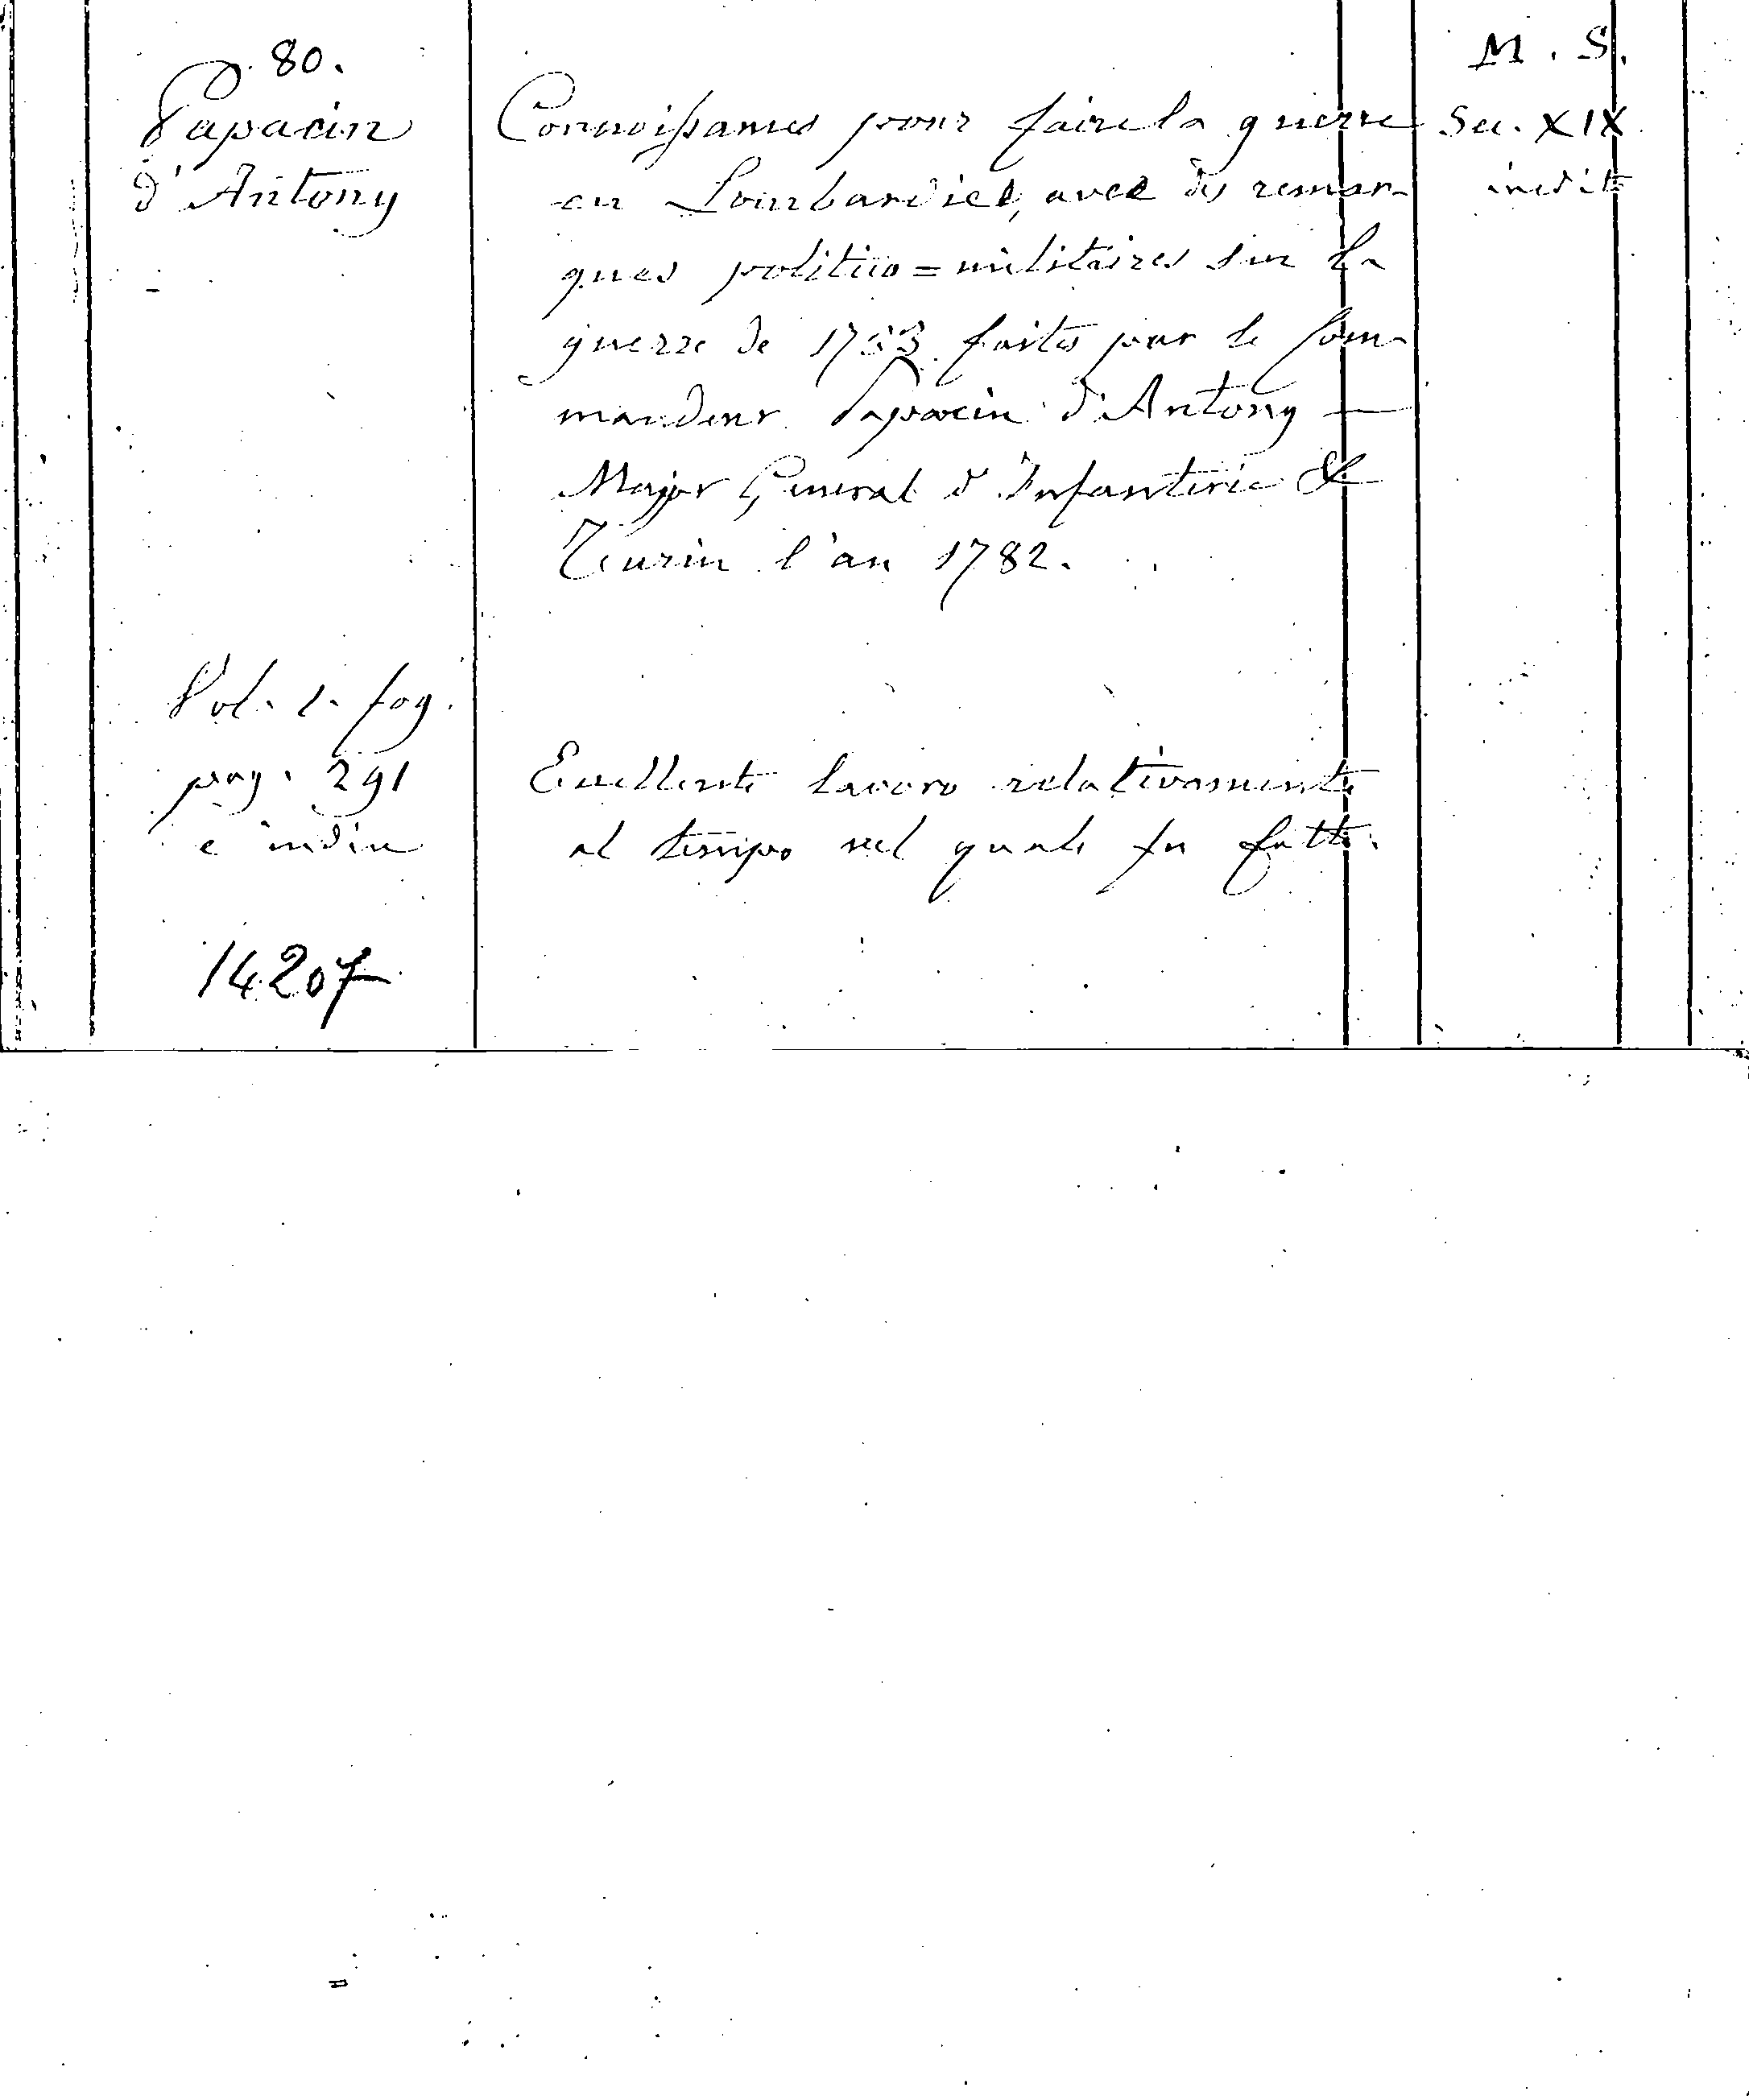 80.
Papacin
d'Antony
Connoissances pour faire la guerre
en Lombardie, avec des remar-
ques politico=militaires sur la
guerre de 1733 faites par le Com-
mandeur Papacin d'Antony —
Major General d'Infanterie &
Turin l'an 1782.
M. S.
Sec. XIX
inedito
Vol. 1. fog.
pag. 291
e indice
Eccellente lavoro relativamente
al tempo nel quale fu fatto.
14207